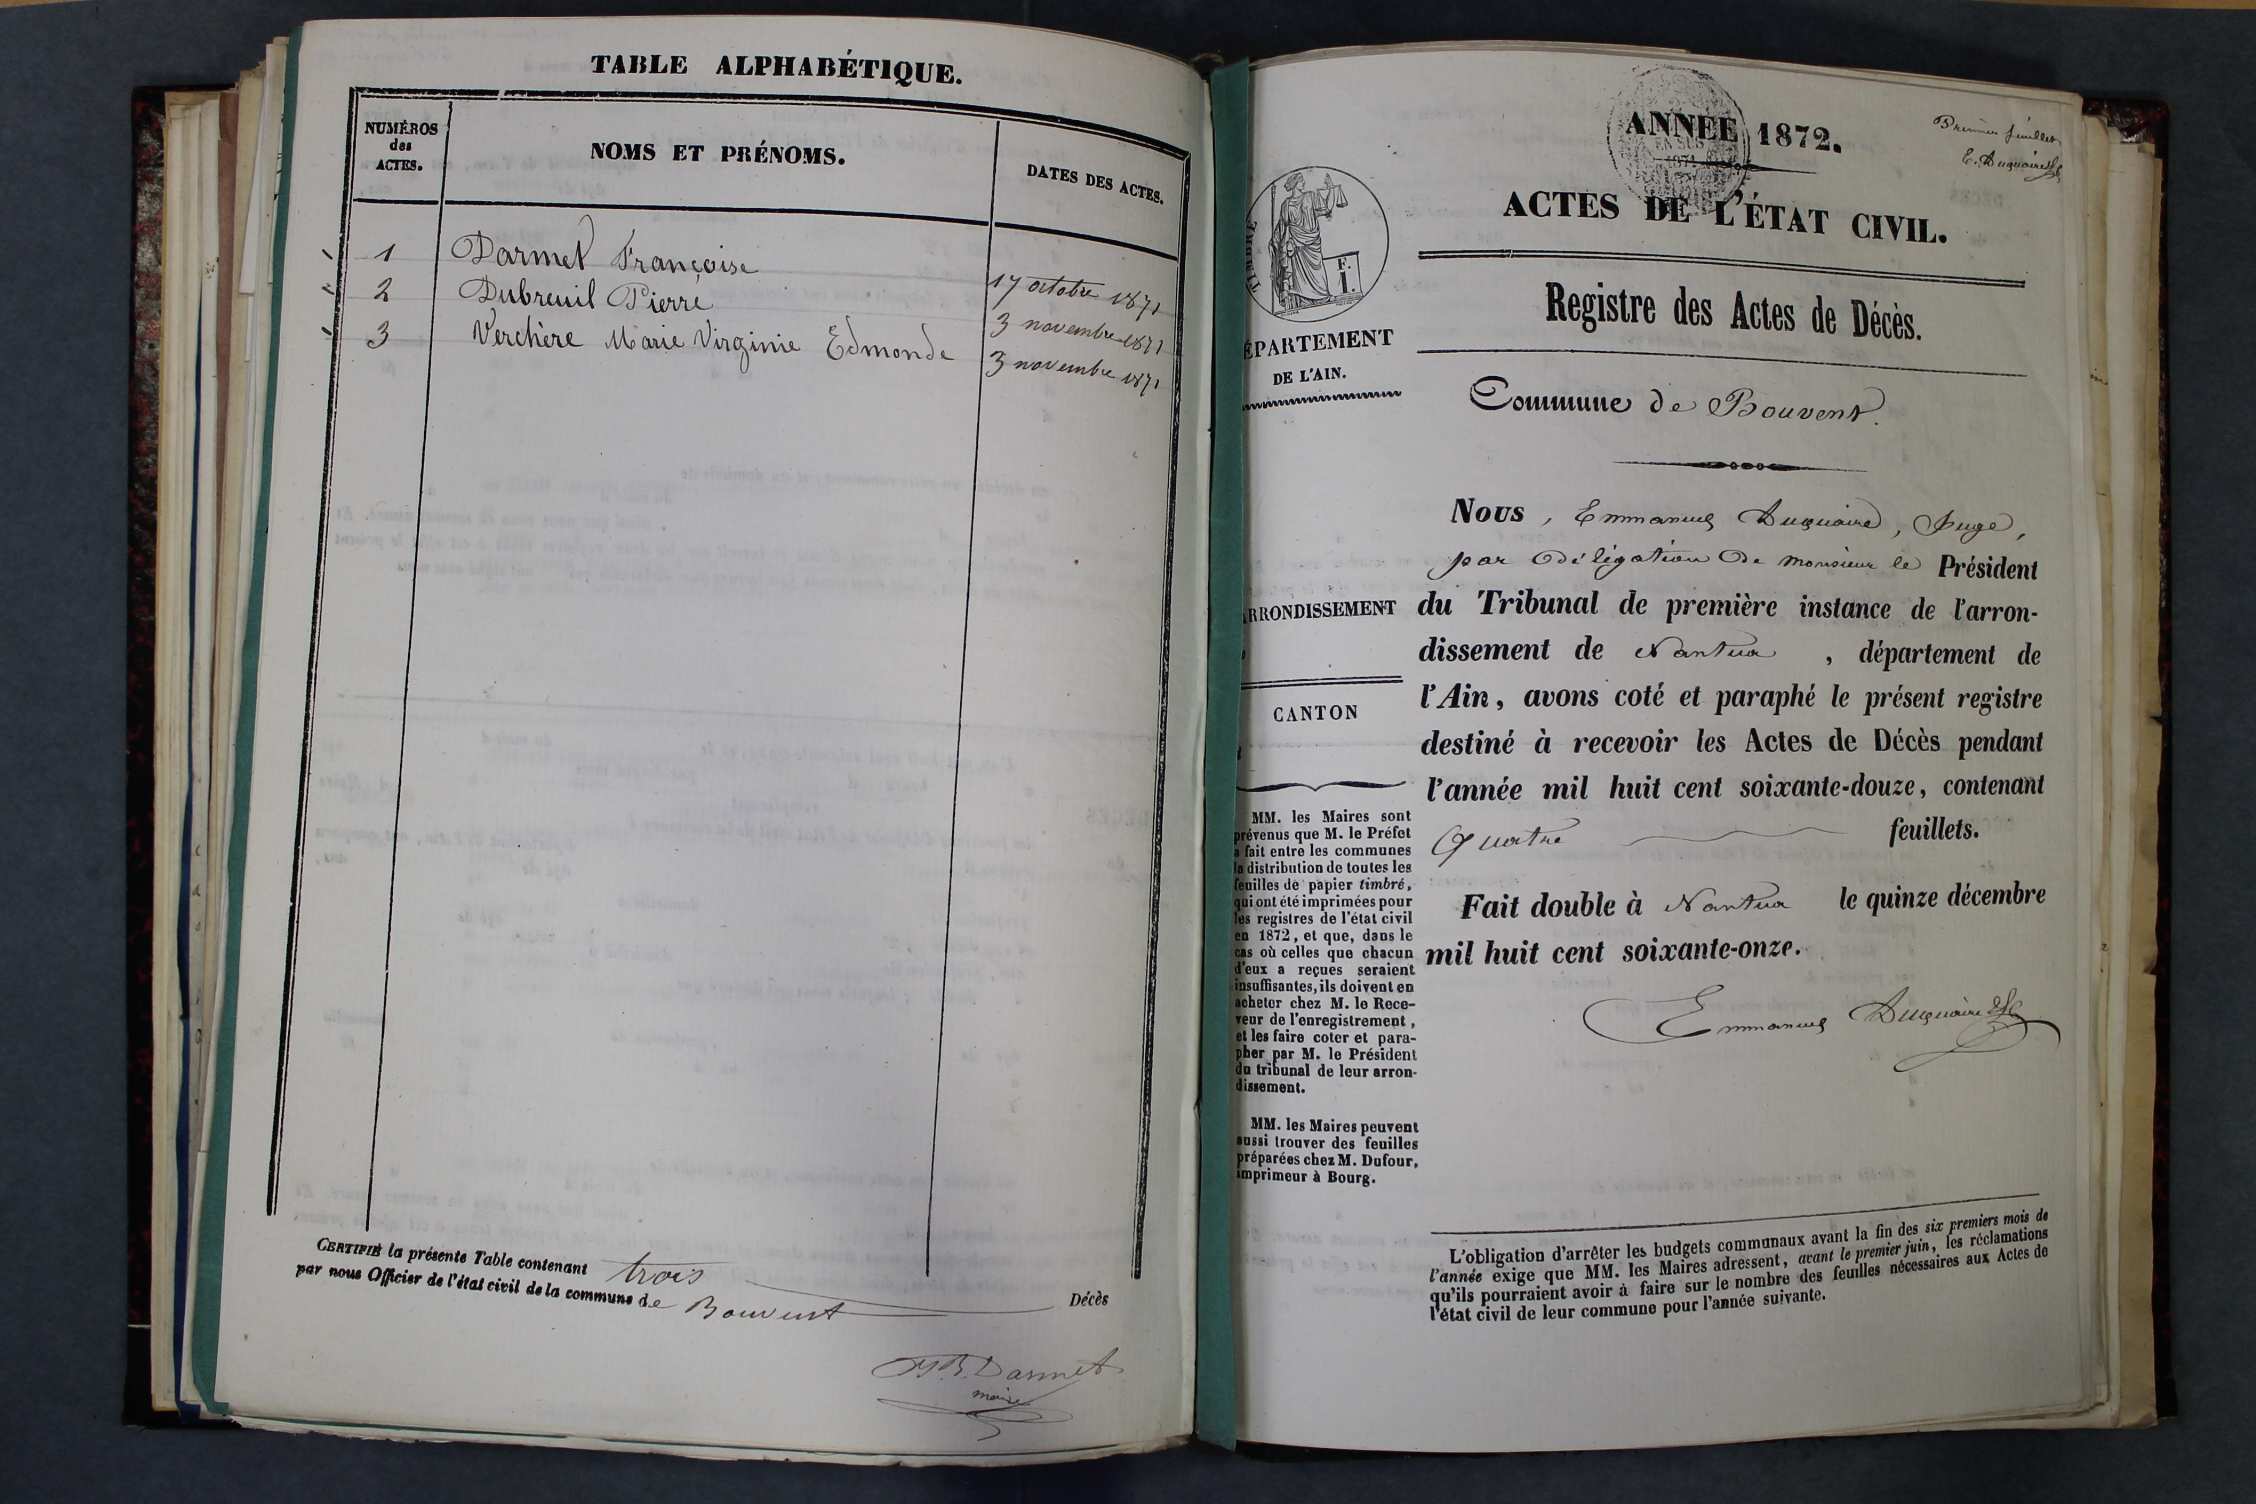 TABLE ALPHABÉTIQUE.
NUMÉROS
des
ACTES.
NOMS ET PRÉNOMS.
DATES DES ACTES.
1 Darmet Françoise 17 octobre 1871
2 Dubreuil Pierre 3 novembre 1871
3 Verchère Marie Virginie Edmonde 3 novembre 1871
CERTIFIÉ la présente Table contenant trois Décès
par nous Officier de l'état civil de la commune de Bouvent
J.B. Darmet
maire
Premier feuillet
E. Duquaire
ANNÉE 1872.
EN SUS
ACTES DE L'ÉTAT CIVIL.
Registre des Actes de Décès.
TIMBRE
F.
1.
ÉPARTEMENT
DE L'AIN.
RRONDISSEMENT
CANTON
MM. les Maires sont
prévenus que M. le Préfet
a fait entre les communes
la distribution de toutes les
feuilles de papier timbré,
qui ont été imprimées pour
les registres de l'état civil
en 1872, et que, dans le
cas où celles que chacun
d'eux a reçues seraient
insuffisantes, ils doivent en
acheter chez M. le Rece-
veur de l'enregistrement,
et les faire coter et para-
pher par M. le Président
du tribunal de leur arron-
dissement.
MM. les Maires peuvent
aussi trouver des feuilles
préparées chez M. Dufour,
imprimeur à Bourg.
Commune de Bouvent.
Nous, Emmanuel Duquaire, Juge,
par délégation de monsieur le Président
du Tribunal de première instance de l'arron-
dissement de Nantua, département de
l'Ain, avons coté et paraphé le présent registre
destiné à recevoir les Actes de Décès pendant
l'année mil huit cent soixante-douze, contenant
Quatre feuillets.
Fait double à Nantua le quinze décembre
mil huit cent soixante-onze.
Emmanuel Duquaire
L'obligation d'arrêter les budgets communaux avant la fin des six premiers mois de
l'année exige que MM. les Maires adressent, avant le premier juin, les réclamations
qu'ils pourraient avoir à faire sur le nombre des feuilles nécessaires aux Actes de
l'état civil de leur commune pour l'année suivante.